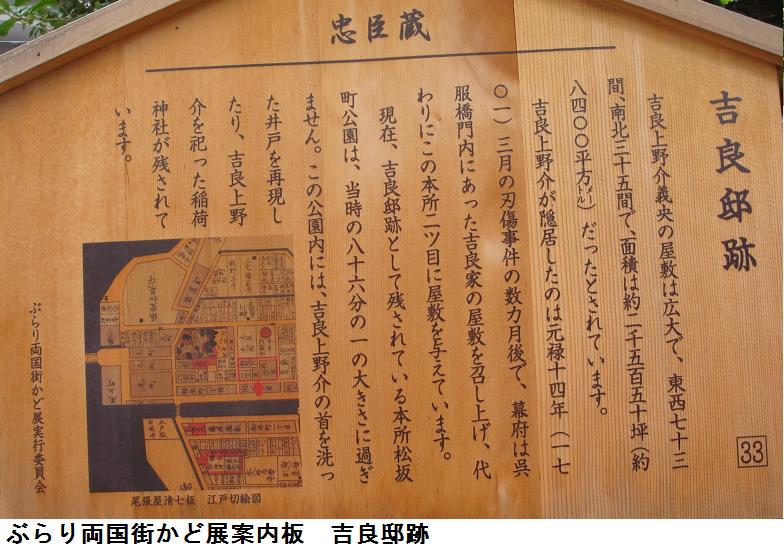 忠臣蔵
吉良邸跡
吉良上野介義央の屋敷は広大で、東西七十三
間、南北三十五間で、面積は約二千五百五十坪(約
八四〇〇平方㍍)だったとされています。
吉良上野介が隠居したのは元禄十四年(一七
〇一)三月の刃傷事件の数カ月後で、幕府は呉
服橋門内にあった吉良家の屋敷を召し上げ、代
わりにこの本所二ツ目に屋敷を与えています。
現在、吉良邸跡として残されている本所松坂
町公園は、当時の八十六分の一の大きさに過ぎ
ません。この公園内には、吉良上野介の首を洗っ
た井戸を再現し
たり、吉良上野
介を祀った稲荷
神社が残されて
います。
33
尾張屋清七板 江戸切絵図
ぶらり両国街かど展実行委員会
ぶらり両国街かど展案内板 吉良邸跡